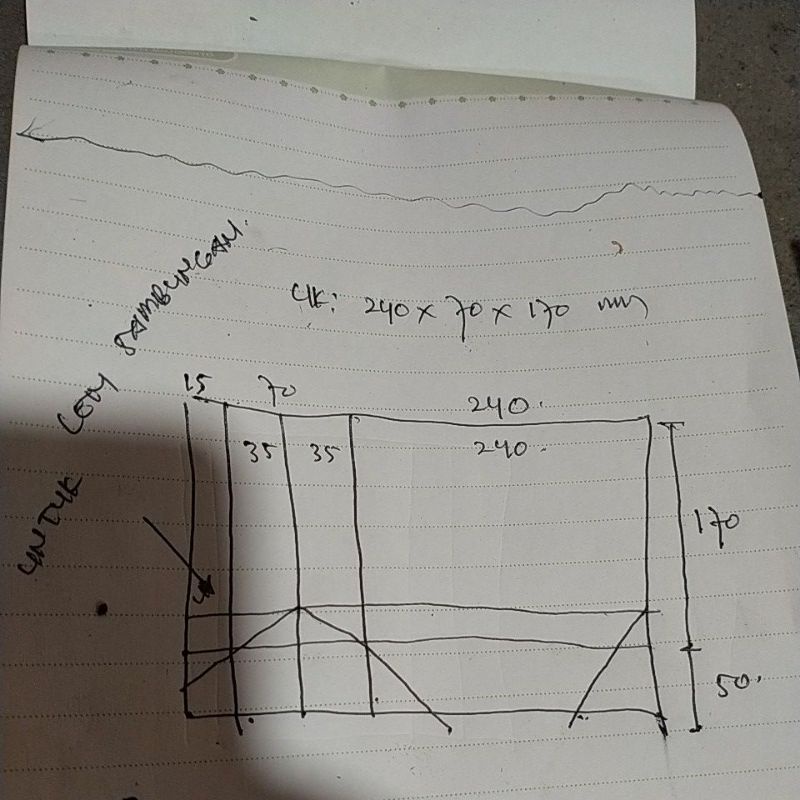 UK: 240 x 70 x 170 mm
UNTUK LEM SAMBUNGAN.
15 70 240.
35 35 240.
170
50.